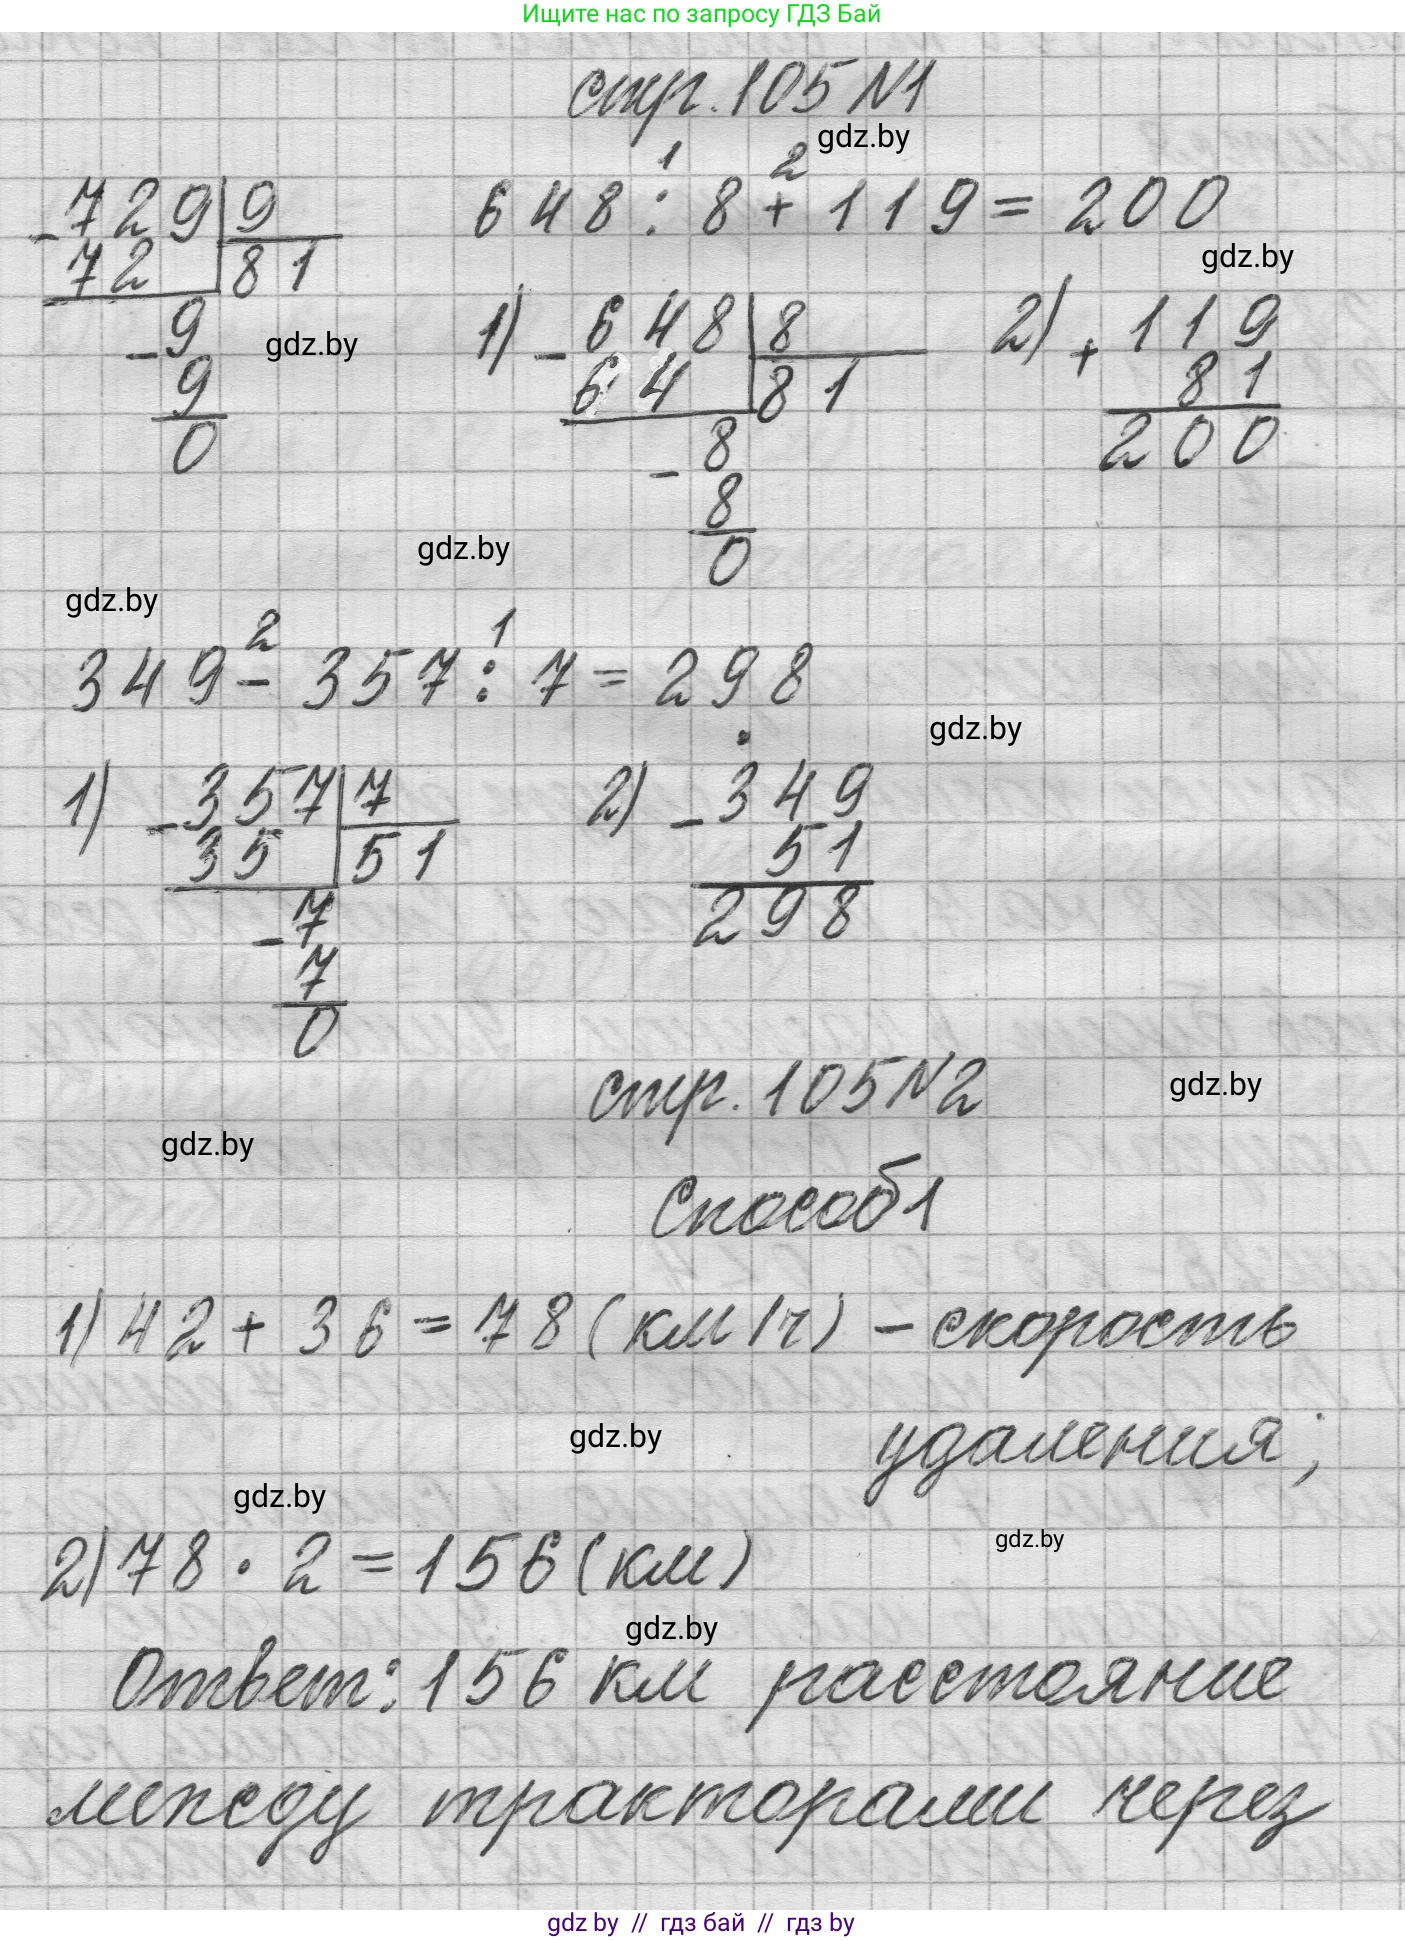 Ищите нас по запросу ГДЗ Бай
стр. 105 №1
gdz.by
- 729 | 9
72 | 81
- 9
9
0
gdz.by
1 2
648 : 8 + 119 = 200
gdz.by
1) - 648 | 8
64 | 81
- 8
8
0
2) + 119
81
200
gdz.by
gdz.by
2 1
349 - 357 : 7 = 298
gdz.by
1) - 357 | 7
35 | 51
- 7
7
0
2) - 349
51
298
стр. 105 №2
gdz.by
gdz.by
Способ 1
1) 42 + 36 = 78 (км/ч) - скорость
удаления;
gdz.by
gdz.by
2) 78 · 2 = 156 (км)
gdz.by
gdz.by
Ответ: 156 км расстояние
между тракторами через
gdz by // гдз бай // гдз by